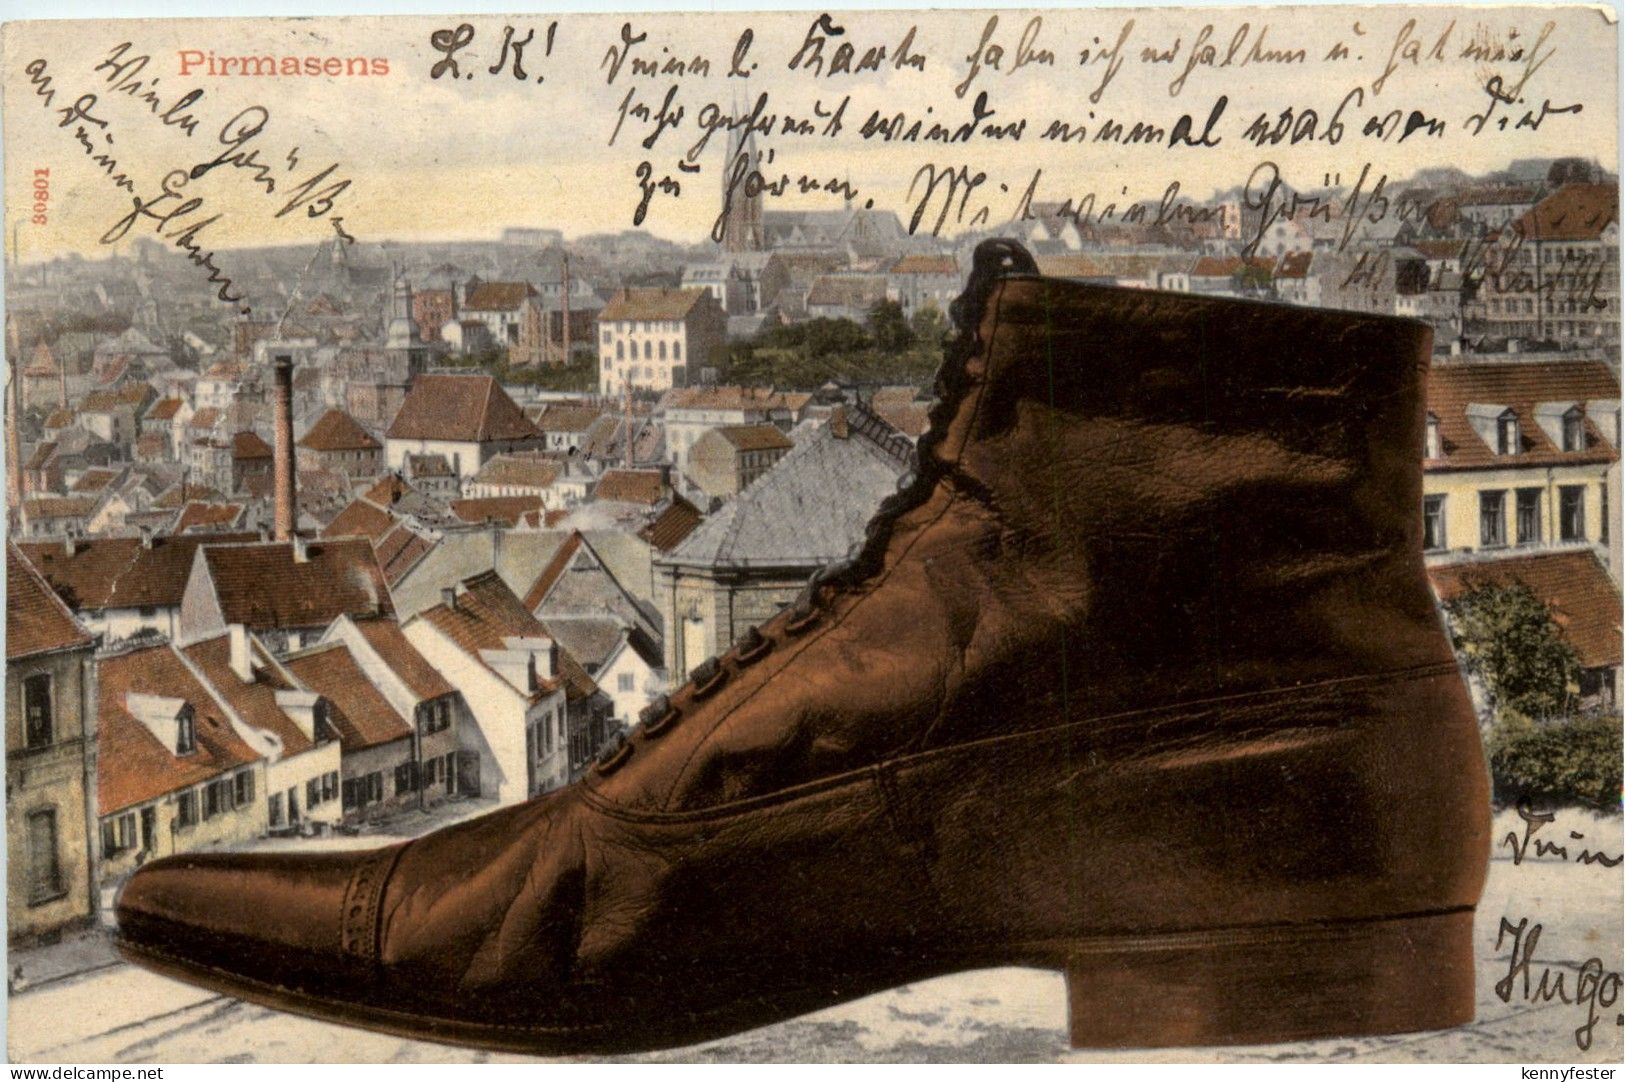 Pirmasens
L. K! Deine l. Karte habe ich erhalten u. hat mich
sehr gefreut wieder einmal was von Dir
zu hören. Mit vielen Grüßen
Dein
Hugo.
Viele Grüße
an Deine Eltern.
30801
delcampe.net
kennyfester